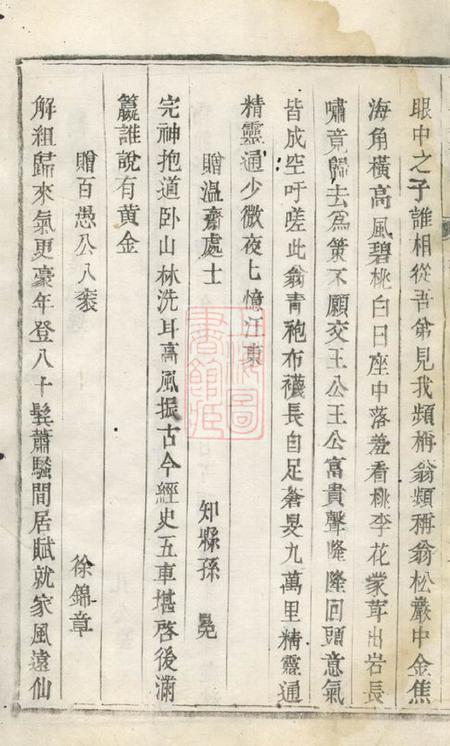 眼中之子誰相從吾弟見我頻稱翁頻稱翁松巖中金焦
海角橫高風碧桃白日座中落羞看桃李花蒙茸出岩長
嘯竟歸去為策不願交王公王公富貴聲隆隆回頭意氣
皆成空吁嗟此翁青袍布襪長自足蒼旻九萬里精靈通
精靈通少微夜上憶江東
贈溫齋處士
知縣孫 冕
完神抱道卧山林洗耳高風振古今經史五車堪啓後滿
籝誰說有黃金
贈百愚公八袠
徐錦章
解組歸來氣更豪年登八十鬂蕭騷間居賦就家風遠仙
上海圖書館藏